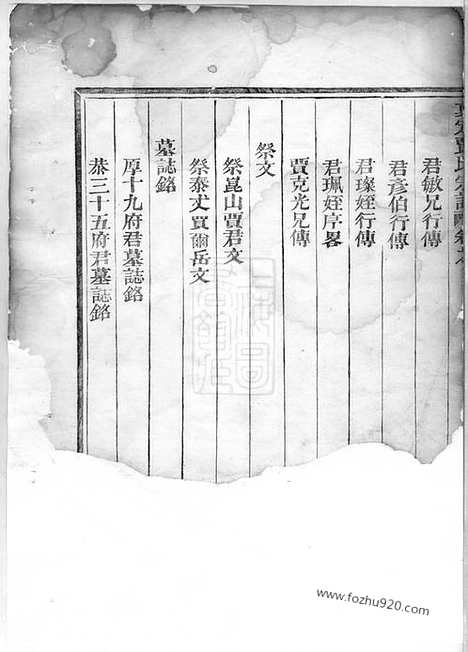 君敏兄行傳
君彥伯行傳
君璨姪行傳
君珮姪序畧
賈克光兄傳
祭文
祭崑山賈君文
祭泰丈賈爾岳文
墓誌銘
厚十九府君墓誌銘
恭三十五府君墓誌銘
www.fozhu920.com